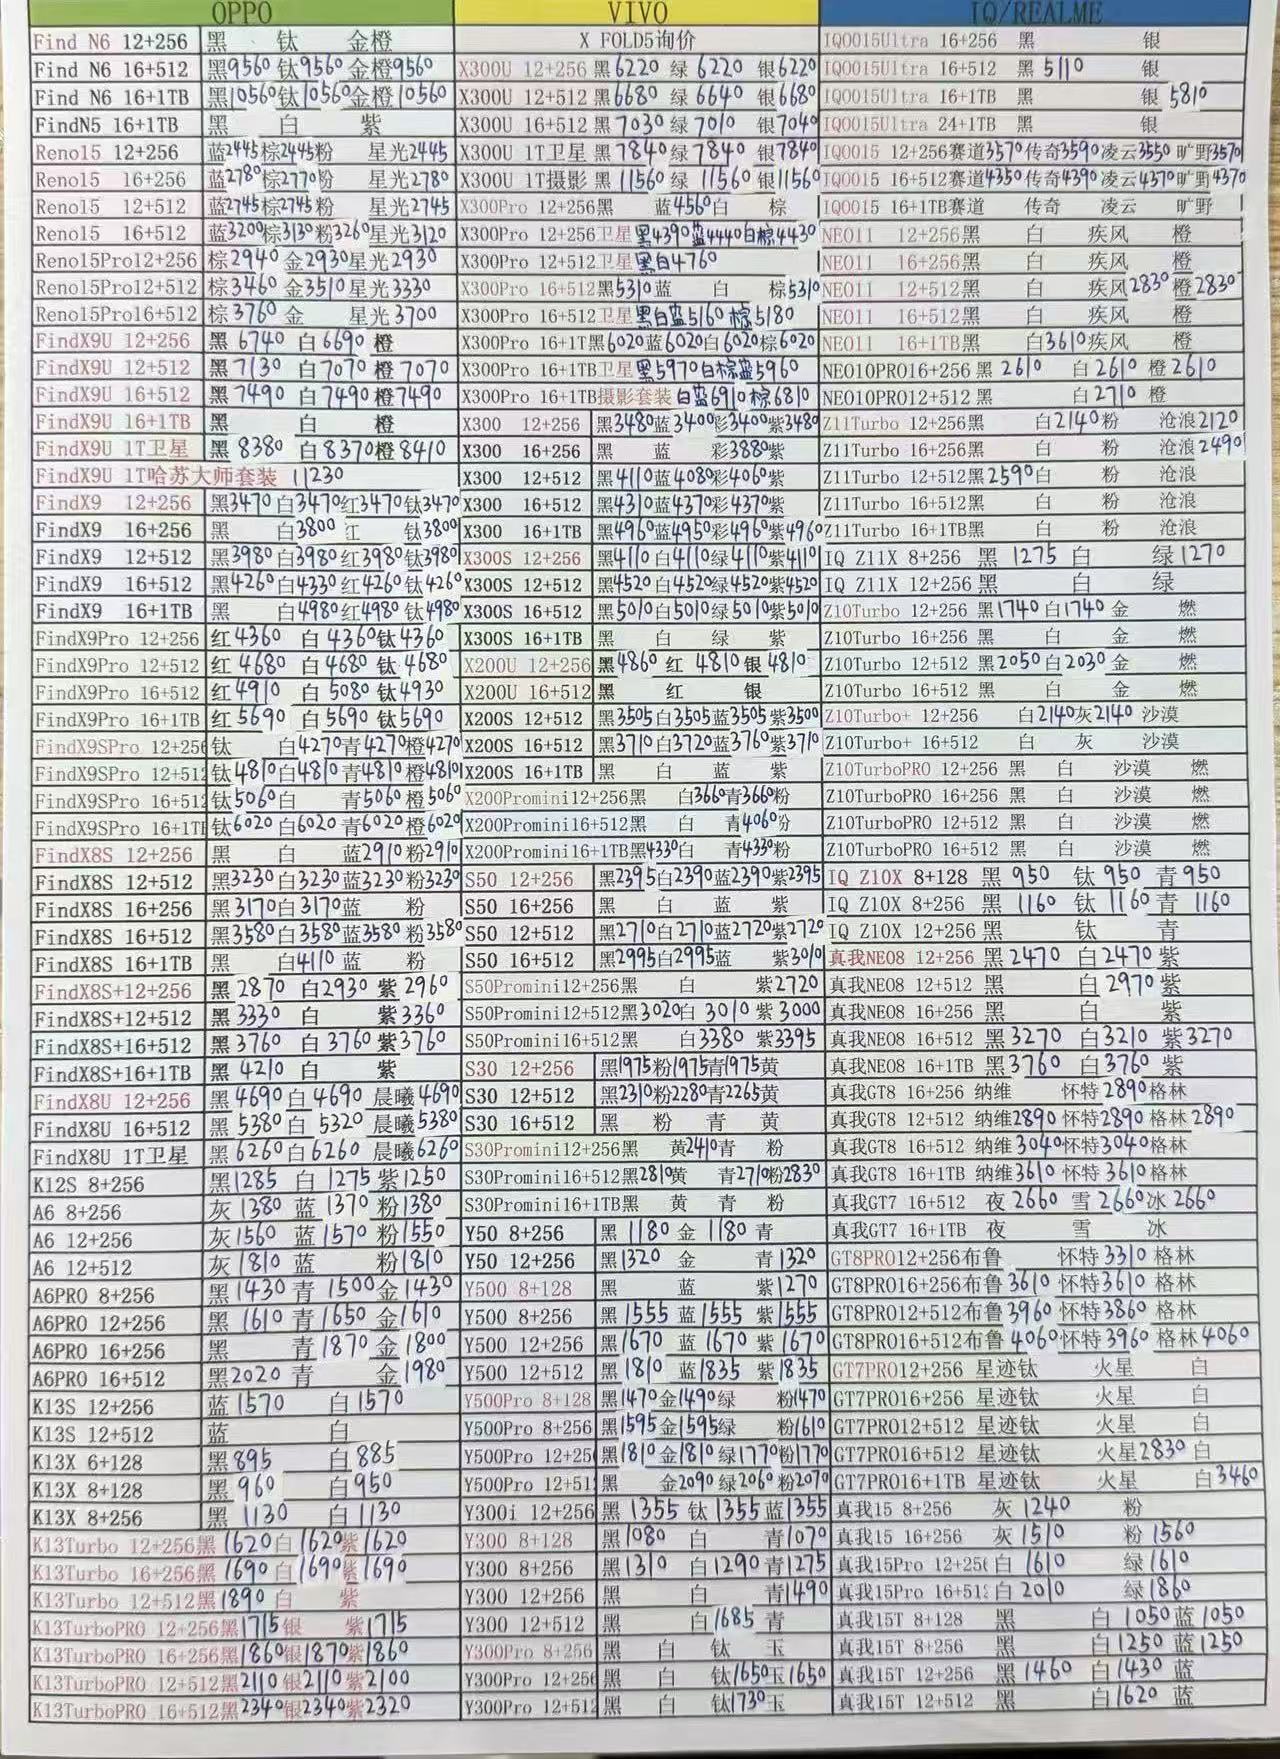 OPPO
Find N6 12+256 黑 钛 金橙
Find N6 16+512 黑9560 钛9560 金橙9560
Find N6 16+1TB 黑10560 钛10560 金橙10560
FindN5 16+1TB 黑 白 紫
Reno15 12+256 蓝2445 棕2445 粉 星光2445
Reno15 16+256 蓝2780 棕2770 粉 星光2780
Reno15 12+512 蓝2745 棕2745 粉 星光2745
Reno15 16+512 蓝3200 棕3130 粉3260 星光3120
Reno15Pro12+256 棕2940 金2930 星光2930
Reno15Pro12+512 棕3460 金3510 星光3330
Reno15Pro16+512 棕3760 金 星光3700
FindX9U 12+256 黑6740 白6690 橙
FindX9U 12+512 黑7130 白7070 橙7070
FindX9U 16+512 黑7490 白7490 橙7490
FindX9U 16+1TB 黑 白 橙
FindX9U 1T卫星 黑8380 白8370 橙8410
FindX9U 1T哈苏大师套装 11230
FindX9 12+256 黑3470 白3470 红3470 钛3470
FindX9 16+256 黑 白3800 红 钛3800
FindX9 12+512 黑3980 白3980 红3980 钛3980
FindX9 16+512 黑4260 白4330 红4260 钛4260
FindX9 16+1TB 黑 白4980 红4980 钛4980
FindX9Pro 12+256 红4360 白4360 钛4360
FindX9Pro 12+512 红4680 白4680 钛4680
FindX9Pro 16+512 红4910 白5080 钛4930
FindX9Pro 16+1TB 红5690 白5690 钛5690
FindX9SPro 12+256 钛 白4270 青4270 橙4270
FindX9SPro 12+512 钛4810 白4810 青4810 橙4810
FindX9SPro 16+512 钛5060 白 青5060 橙5060
FindX9SPro 16+1TB 钛6020 白6020 青6020 橙6020
FindX8S 12+256 黑 白 蓝2910 粉2910
FindX8S 12+512 黑3230 白3230 蓝3230 粉3230
FindX8S 16+256 黑3170 白3170 蓝 粉
FindX8S 16+512 黑3580 白3580 蓝3580 粉3580
FindX8S 16+1TB 黑 白4110 蓝 粉
FindX8S+12+256 黑2870 白2930 紫2960
FindX8S+12+512 黑3330 白 紫3360
FindX8S+16+512 黑3760 白3760 紫3760
FindX8S+16+1TB 黑4210 白 紫
FindX8U 12+256 黑4690 白4690 晨曦4690
FindX8U 16+512 黑5380 白5320 晨曦5380
FindX8U 1T卫星 黑6260 白6260 晨曦6260
K12S 8+256 黑1285 白1275 紫1250
A6 8+256 灰1380 蓝1370 粉1380
A6 12+256 灰1560 蓝1570 粉1550
A6 12+512 灰1810 蓝 粉1810
A6PRO 8+256 黑1430 青1500 金1430
A6PRO 12+256 黑1610 青1650 金1610
A6PRO 16+256 黑 青1870 金1800
A6PRO 16+512 黑2020 青 金1980
K13S 12+256 蓝1570 白1570
K13S 12+512 蓝 白
K13X 6+128 黑895 白885
K13X 8+128 黑960 白950
K13X 8+256 黑1130 白1130
K13Turbo 12+256黑1620 白1620 紫1620
K13Turbo 16+256黑1690 白1690 紫1690
K13Turbo 12+512黑1890 白 紫
K13TurboPRO 12+256黑1715 银 紫1715
K13TurboPRO 16+256黑1860 银1870 紫1860
K13TurboPRO 12+512黑2110 银2110 紫2100
K13TurboPRO 16+512黑2340 银2340 紫2320
VIVO
X FOLD5询价
X300U 12+256 黑6220 绿6220 银6220
X300U 12+512 黑6680 绿6640 银6680
X300U 16+512 黑7030 绿7010 银7040
X300U 1T卫星 黑7840 绿7840 银7840
X300U 1T摄影 黑11560 绿11560 银11560
X300Pro 12+256黑 蓝4560 白 棕
X300Pro 12+256卫星 黑4390 蓝4440 白棕4430
X300Pro 12+512卫星 黑白4760
X300Pro 16+512黑5310 蓝 白 棕5310
X300Pro 16+512卫星 黑白蓝5160 棕5180
X300Pro 16+1T黑6020 蓝6020 白6020 棕6020
X300Pro 16+1TB卫星 黑5970 白棕蓝5960
X300Pro 16+1TB摄影套装 白蓝6910 棕6810
X300 12+256 黑3480 蓝3400 彩3400 紫3480
X300 16+256 黑 蓝 彩3880 紫
X300 12+512 黑4110 蓝4080 彩4060 紫
X300 16+512 黑4310 蓝4270 彩4370 紫
X300 16+1TB 黑4960 蓝4950 彩4960 紫4960
X300S 12+256 黑4110 白4110 绿4110 紫4110
X300S 12+512 黑4520 白4520 绿4520 紫4520
X300S 16+512 黑5010 白5010 绿5010 紫5010
X300S 16+1TB 黑 白 绿 紫
X200U 12+256 黑4860 红4810 银4810
X200U 16+512 黑 红 银
X200S 12+512 黑3505 白3505 蓝3505 紫3500
X200S 16+512 黑3710 白3720 蓝3760 紫3710
X200S 16+1TB 黑 白 蓝 紫
X200Promini12+256黑 白3660 青3660 粉
X200Promini16+512黑 白 青4060 粉
X200Promini16+1TB黑4330 白 青4330 粉
S50 12+256 黑2395 白2390 蓝2390 紫2395
S50 16+256 黑 白 蓝 紫
S50 12+512 黑2710 白2710 蓝2720 紫2720
S50 16+512 黑2995 白2995 蓝 紫3010
S50Promini12+256黑 白 紫2720
S50Promini12+512黑3020 白3010 紫3000
S50Promini16+512黑 白3380 紫3395
S30 12+256 黑1975 粉1975 青1975 黄
S30 12+512 黑2310 粉2280 青2265 黄
S30 16+512 黑 粉 青 黄
S30Promini12+256黑 黄2410 青 粉
S30Promini16+512黑2810 黄 青2710 粉2830
S30Promini16+1TB黑 黄 青 粉
Y50 8+256 黑1180 金1180 青
Y50 12+256 黑1320 金 青1320
Y500 8+128 黑 蓝 紫1270
Y500 8+256 黑1555 蓝1555 紫1555
Y500 12+256 黑1670 蓝1670 紫1670
Y500 12+512 黑1810 蓝1835 紫1835
Y500Pro 8+128 黑1470 金1490 绿 粉1470
Y500Pro 8+256 黑1595 金1595 绿 粉1610
Y500Pro 12+25 黑1810 金1810 绿1770 粉1770
Y500Pro 12+51 黑 金2090 绿2060 粉2070
Y300i 12+256 黑1355 钛1355 蓝1355
Y300 8+128 黑1080 白 青1070
Y300 8+256 黑1310 白1290 青1275
Y300 12+256 黑 白 青1490
Y300 12+512 黑 白1685 青
Y300Pro 8+256 黑 白 钛 玉
Y300Pro 12+256 黑 白 钛1650 玉1650
Y300Pro 12+512 黑 白 钛1730 玉
IQ/REALME
IQOO15Ultra 16+256 黑 银
IQOO15Ultra 16+512 黑5110 银
IQOO15Ultra 16+1TB 黑 银5810
IQOO15Ultra 24+1TB 黑 银
IQOO15 12+256赛道3570 传奇3590 凌云3550 旷野3570
IQOO15 16+512赛道4350 传奇4390 凌云4370 旷野4370
IQOO15 16+1TB赛道 传奇 凌云 旷野
NEO11 12+256黑 白 疾风 橙
NEO11 16+256黑 白 疾风 橙
NEO11 12+512黑 白 疾风2830 橙2830
NEO11 16+512黑 白 疾风 橙
NEO11 16+1TB黑 白3610 疾风 橙
NEO10PRO16+256 黑2610 白2610 橙2610
NEO10PRO12+512 黑 白2710 橙
Z11Turbo 12+256黑 白2140 粉 沧浪2120
Z11Turbo 16+256黑 白 粉 沧浪2490
Z11Turbo 12+512黑2590 白 粉 沧浪
Z11Turbo 16+512黑 白 粉 沧浪
Z11Turbo 16+1TB黑 白 粉 沧浪
IQ Z11X 8+256 黑1275 白 绿1270
IQ Z11X 12+256 黑 白 绿
Z10Turbo 12+256 黑1740 白1740 金 燃
Z10Turbo 16+256 黑 白 金 燃
Z10Turbo 12+512 黑2050 白2030 金 燃
Z10Turbo 16+512 黑 白 金 燃
Z10Turbo+ 12+256 白2140 灰2140 沙漠
Z10Turbo+ 16+512 白 灰 沙漠
Z10TurboPRO 12+256 黑 白 沙漠 燃
Z10TurboPRO 16+256 黑 白 沙漠 燃
Z10TurboPRO 12+512 黑 白 沙漠 燃
Z10TurboPRO 16+512 黑 白 沙漠 燃
IQ Z10X 8+128 黑950 钛950 青950
IQ Z10X 8+256 黑1160 钛1160 青1160
IQ Z10X 12+256 黑 钛 青
真我NEO8 12+256 黑2470 白2470 紫
真我NEO8 12+512 黑 白2970 紫
真我NEO8 16+256 黑 白 紫
真我NEO8 16+512 黑3270 白3210 紫3270
真我NEO8 16+1TB 黑3760 白3760 紫
真我GT8 16+256 纳维 怀特2890 格林
真我GT8 12+512 纳维2890 怀特2890 格林2890
真我GT8 16+512 纳维3040 怀特3040 格林
真我GT8 16+1TB 纳维3610 怀特3610 格林
真我GT7 16+512 夜2660 雪2660 冰2660
真我GT7 16+1TB 夜 雪 冰
GT8PRO12+256布鲁 怀特3310 格林
GT8PRO16+256布鲁3610 怀特3610 格林
GT8PRO12+512布鲁3960 怀特3860 格林
GT8PRO16+512布鲁4060 怀特3960 格林4060
GT7PRO12+256 星迹钛 火星 白
GT7PRO16+256 星迹钛 火星 白
GT7PRO12+512 星迹钛 火星 白
GT7PRO16+512 星迹钛 火星2830 白
GT7PRO16+1TB 星迹钛 火星 白3460
真我15 8+256 灰1240 粉
真我15 16+256 灰1510 粉1560
真我15Pro 12+256 白1610 绿1610
真我15Pro 16+512 白2010 绿1860
真我15T 8+128 黑 白1050 蓝1050
真我15T 8+256 黑 白1250 蓝1250
真我15T 12+256 黑1460 白1430 蓝
真我15T 12+512 黑 白1620 蓝